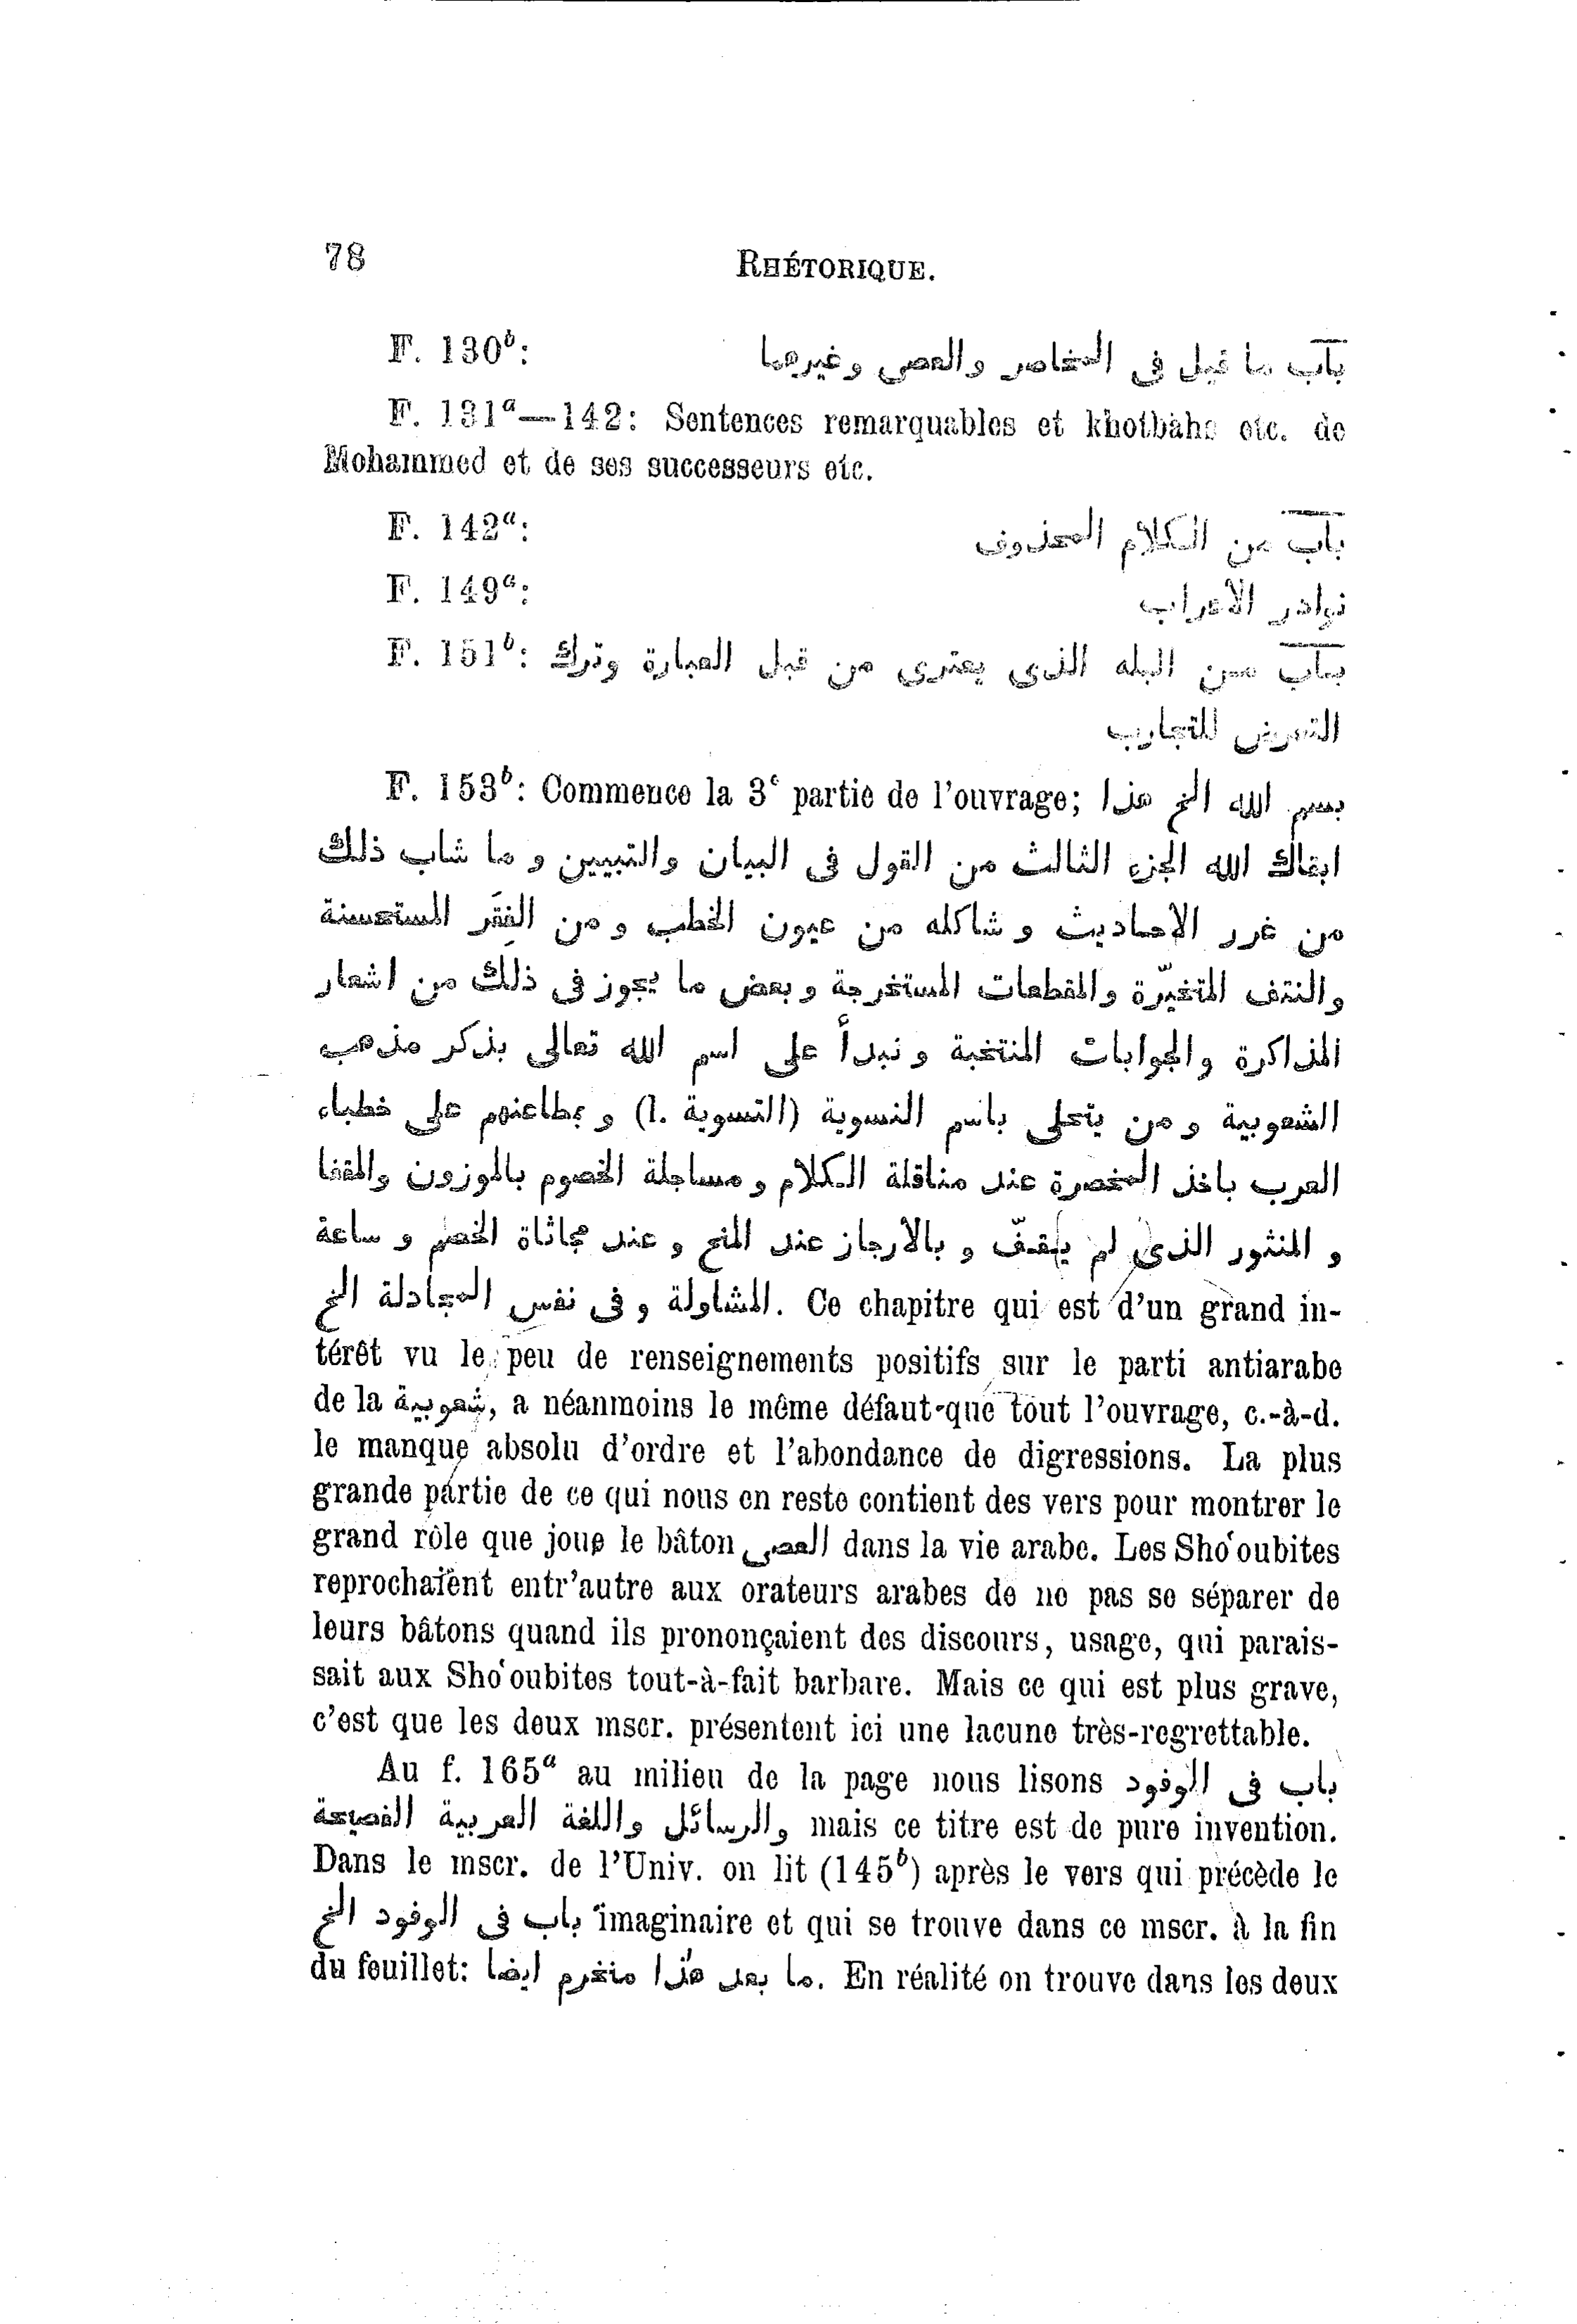 78 RHÉTORIQUE.
F. 130b: باب ما قيل فى المخاصر والعصى وغيرهما
F. 131a—142: Sentences remarquables et khotbahs etc. de
Mohammed et de ses successeurs etc.
F. 142a: باب من الكلام المحذوف
F. 149a: نوادر الاعراب
F. 151b: باب من البله الذى يعترى من قبل العبارة وترك
التعرض للتجارب
F. 153b: Commence la 3e partie de l'ouvrage; بسم الله الخ هذا
ابقاك الله الجزء الثالث من القول فى البيان والتبيين و ما شاب ذلك
من غرر الاحاديث و شاكله من عيون الخطب و من الفِقَر المستحسنة
والنتف المتخيّرة والمقطعات المستخرجة و بعض ما يجوز فى ذلك من اشعار
المذاكرة والجوابات المنتخبة و نبدأ على اسم الله تعالى بذكر مذهب
الشعوبية و من يتحلى باسم النسوية (l. التسوية) و بطاعنهم على خطباء
العرب باخذ المخصرة عند مناقلة الكلام و مساجلة الخصوم بالموزون والمقفا
و المنثور الذى لم يقفّ و بالارجاز عند المتح و عند مجاثاة الخصم و ساعة
المشاولة و فى نفس المجادلة الخ. Ce chapitre qui est d'un grand in-
térêt vu le peu de renseignements positifs sur le parti antiarabe
de la شعوبية, a néanmoins le même défaut que tout l'ouvrage, c.-à-d.
le manque absolu d'ordre et l'abondance de digressions. La plus
grande partie de ce qui nous en reste contient des vers pour montrer le
grand rôle que joue le bâton العصى dans la vie arabe. Les Sho'oubites
reprochaient entr'autre aux orateurs arabes de ne pas se séparer de
leurs bâtons quand ils prononçaient des discours, usage, qui parais-
sait aux Sho'oubites tout-à-fait barbare. Mais ce qui est plus grave,
c'est que les deux mscr. présentent ici une lacune très-regrettable.
Au f. 165a au milieu de la page nous lisons باب فى الوفود
والرسائل واللغة العربية الفصيحة mais ce titre est de pure invention.
Dans le mscr. de l'Univ. on lit (145b) après le vers qui précède le
باب فى الوفود الخ imaginaire et qui se trouve dans ce mscr. à la fin
du feuillet: ما بعد هذا منخرم ايضا. En réalité on trouve dans les deux